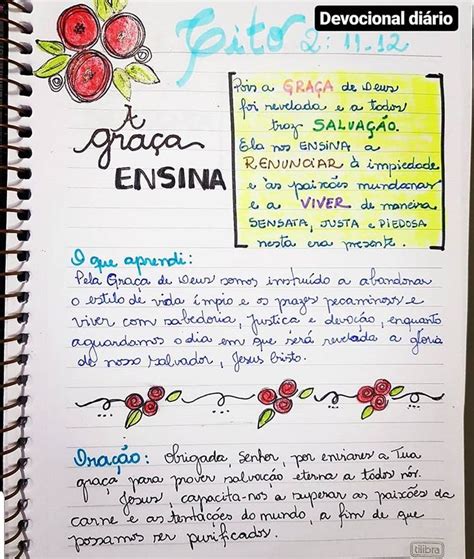 Devocional diário
Tito 2:11-12
A
graça
ENSINA
Pois a GRAÇA de Deus
foi revelada e a todos
traz SALVAÇÃO.
Ela nos ENSINA a
RENUNCIAR à impiedade
e às paixões mundanas
e a VIVER de maneira
SENSATA, JUSTA e PIEDOSA
nesta era presente.
O que aprendi:
Pela Graça de Deus somos instruído a abandonar
o estilo de vida ímpio e os prazes pecaminosos e
viver com sabedoria, justiça e devoção, enquanto
aguardamos o dia em que será revelada a glória
de nosso salvador, Jesus Cristo.
Oração: Obrigada, Senhor, por enviares a Tua
graça para prover salvação eterna a todos nós.
Jesus, capacita-nos a superar as paixões da
carne e as tentações do mundo, a fim de que
possamos ser purificados.
tilibra